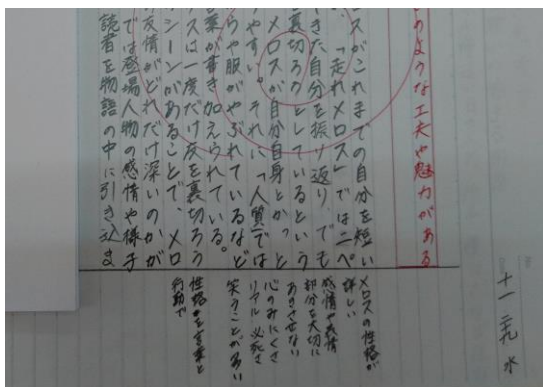 十一 二九 水
のような工夫や魅力がある
スがこれまでの自分を短い
、「走れメロス」では二ペ
きた自分を振り返り、でも
裏切ろうとしているという
メロスが自分自身とかっと
りやすい。それに「人質」では
らや服がやぶれているなど
言葉が書き加えられている。
スは一度だけ友を裏切ろう
シーンがあることで、メロ
友情がどれだけ深いのかが
では登場人物の感情や様子
読者を物語の中に引き込ま
メロスの性格が
詳しい
感情や表情
部分を大切に
ありさせない
心のみにくさ
リアル 必死さ
笑うことが多い
性格かを言葉と
行動で